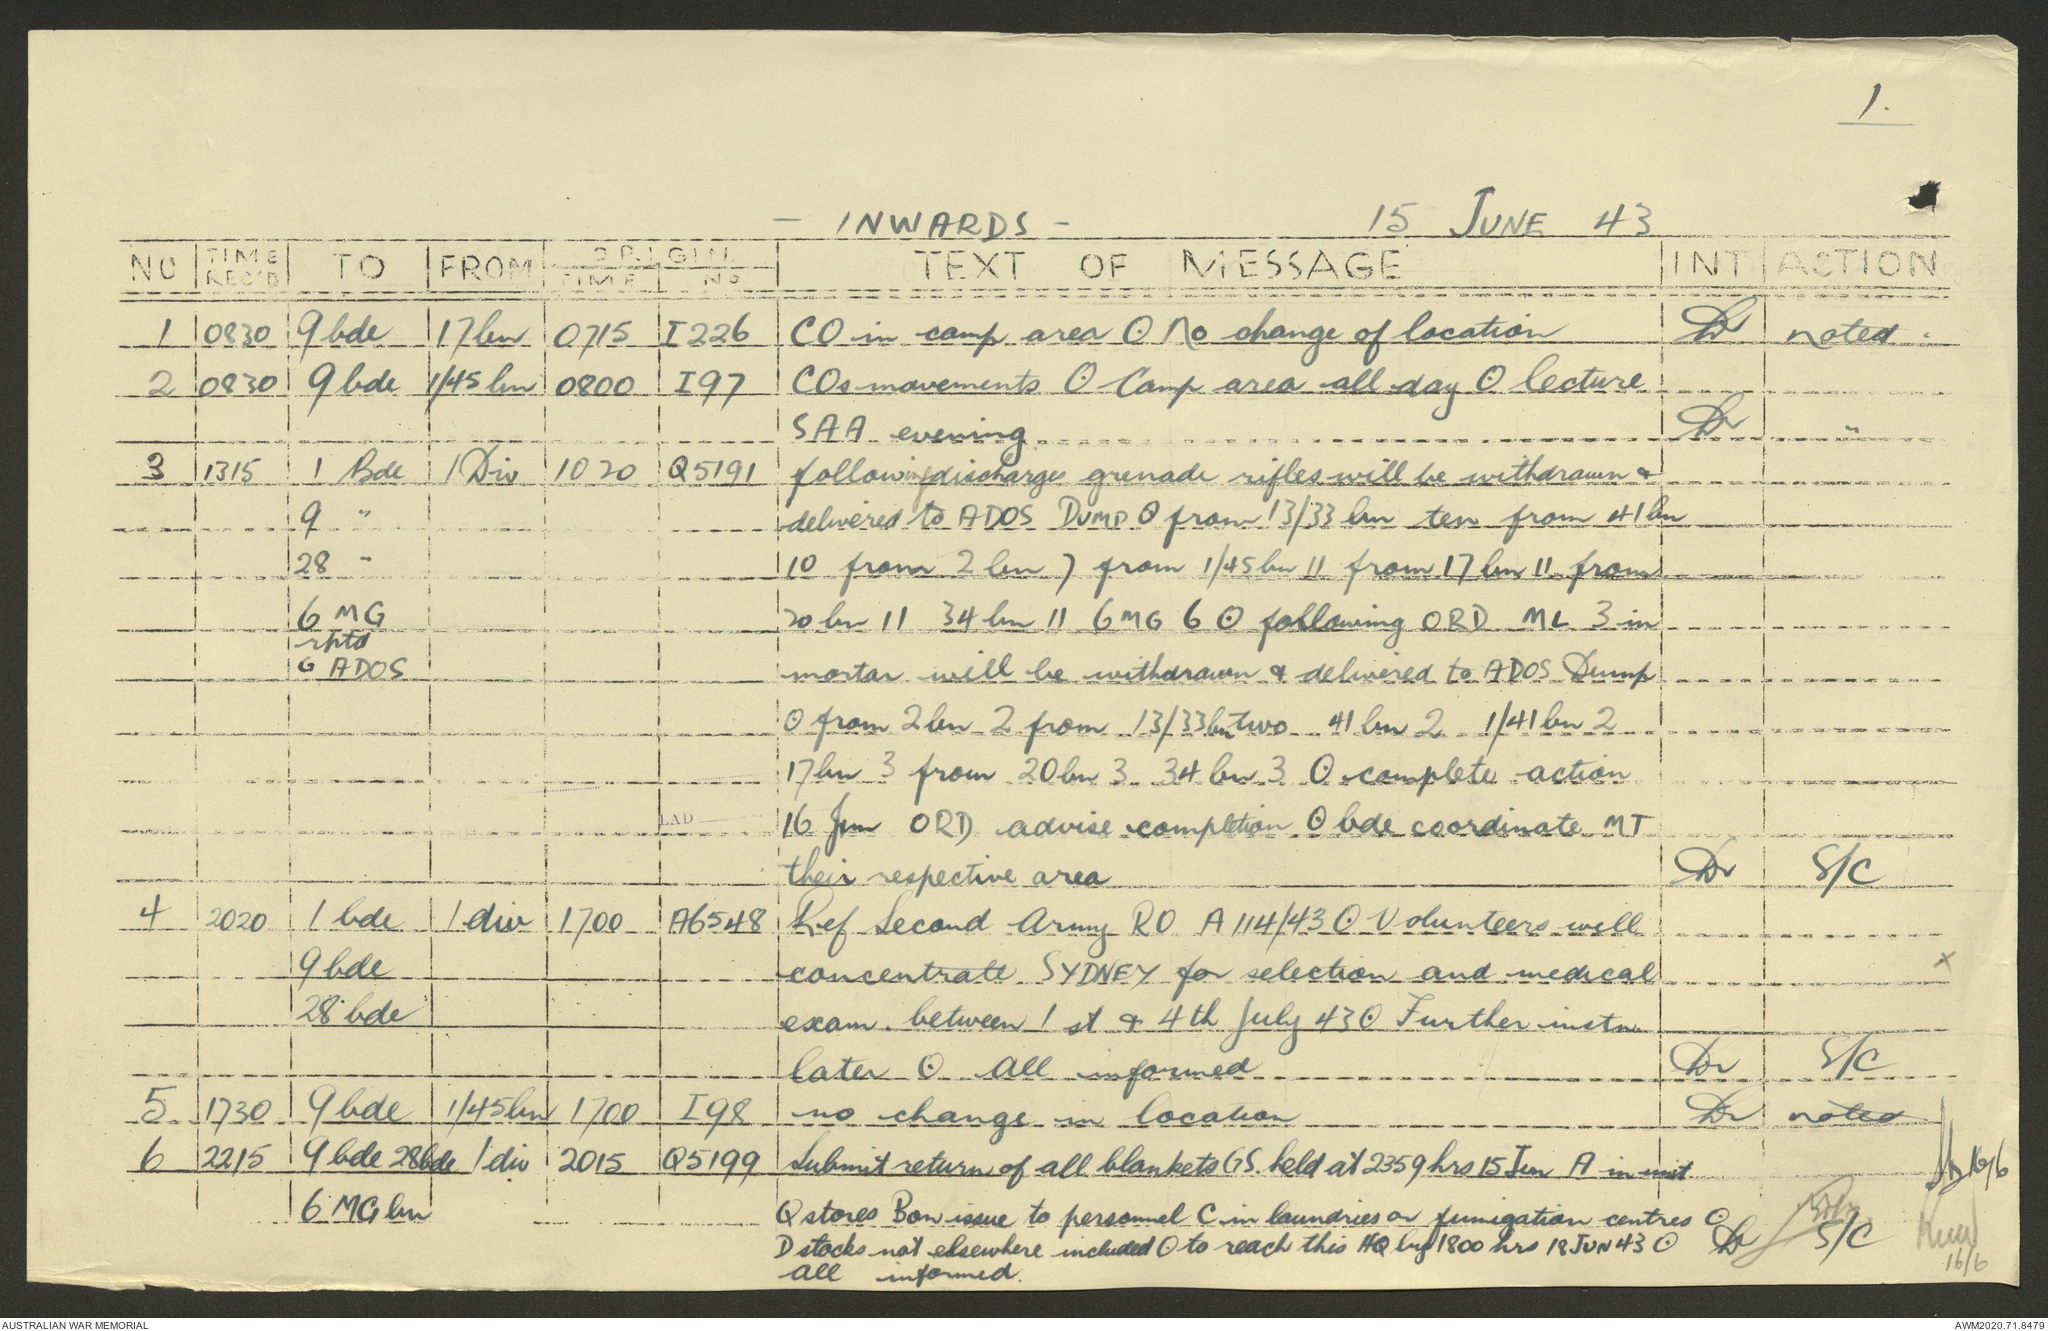 1.
- INWARDS - 15 JUNE 43
NO TIME REC'D TO FROM ORIGIN TIME NO TEXT OF MESSAGE INT ACTION
1 0830 9 bde 17 bn 0715 I226 CO in camp area ⊙ No change of location Dr noted
2 0830 9 bde 1/45 bn 0800 I97 COs movements ⊙ Camp area all day ⊙ lecture
SAA evening Dr "
3 1315 1 Bde 1 Div 1020 Q5191 following discharges grenade rifles will be withdrawn &
9 " delivered to ADOS DUMP ⊙ from 13/33 bn ten from 41 bn
28 " 10 from 2 bn 7 from 1/45 bn 11 from 17 bn 11 from
6 MG 20 bn 11 34 bn 11 6 MG 6 ⊙ following ORD ML 3 in
rptd
G ADOS mortar will be withdrawn & delivered to ADOS Dump
⊙ from 2 bn 2 from 13/33 bn two 41 bn 2 1/41 bn 2
17 bn 3 from 20 bn 3 34 bn 3 ⊙ complete action
LAD 16 Jun ORD advise completion ⊙ bde coordinate MT
their respective area Dr S/C
4 2020 1 bde 1 div 1700 A6548 Ref Second Army RO A 114/43 ⊙ Volunteers will
9 bde concentrate SYDNEY for selection and medical x
28 bde exam. between 1 st & 4th July 43 ⊙ Further instn
later ⊙ All informed Dr S/C
5 1730 9 bde 1/45 bn 1700 I98 no change in location Dr noted
6 2215 9 bde 28 bde 1 div 2015 Q5199 Submit return of all blankets GS. held at 2359 hrs 15 Jun A in unit 16/6
6 MG bn Q stores B on issue to personnel C in laundries or fumigation centres ⊙
D stocks not elsewhere included ⊙ to reach this HQ by 1800 hrs 18 JUN 43 ⊙ Dr S/C
all informed. 16/6
AUSTRALIAN WAR MEMORIAL AWM2020.71.8479